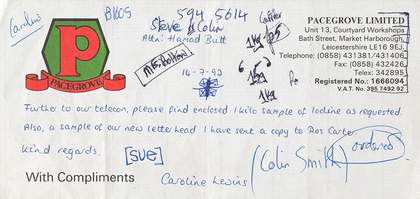 Caroline
B1605
594 5614
Steve & Colin
Attn: Harrad Butt
Mrs. Bolton
14-7-92
1kg
1kg
P
PACEGROVE
PACEGROVE LIMITED
Unit 13, Courtyard Workshops
Bath Street, Market Harborough,
Leicestershire LE16 9EJ
Telephone: (0858) 431381/431406
Fax: (0858) 432426
Telex: 342895
Registered No.: 1666094
V.A.T. No. 395 7492 92
Further to our telecon, please find enclosed 1 kilo sample of Iodine as requested.
Also, a sample of our new letter head. I have sent a copy to Ros Carter
Kind regards.
[SUE]
(Colin Smith)
ordered
With Compliments
Caroline Lewins